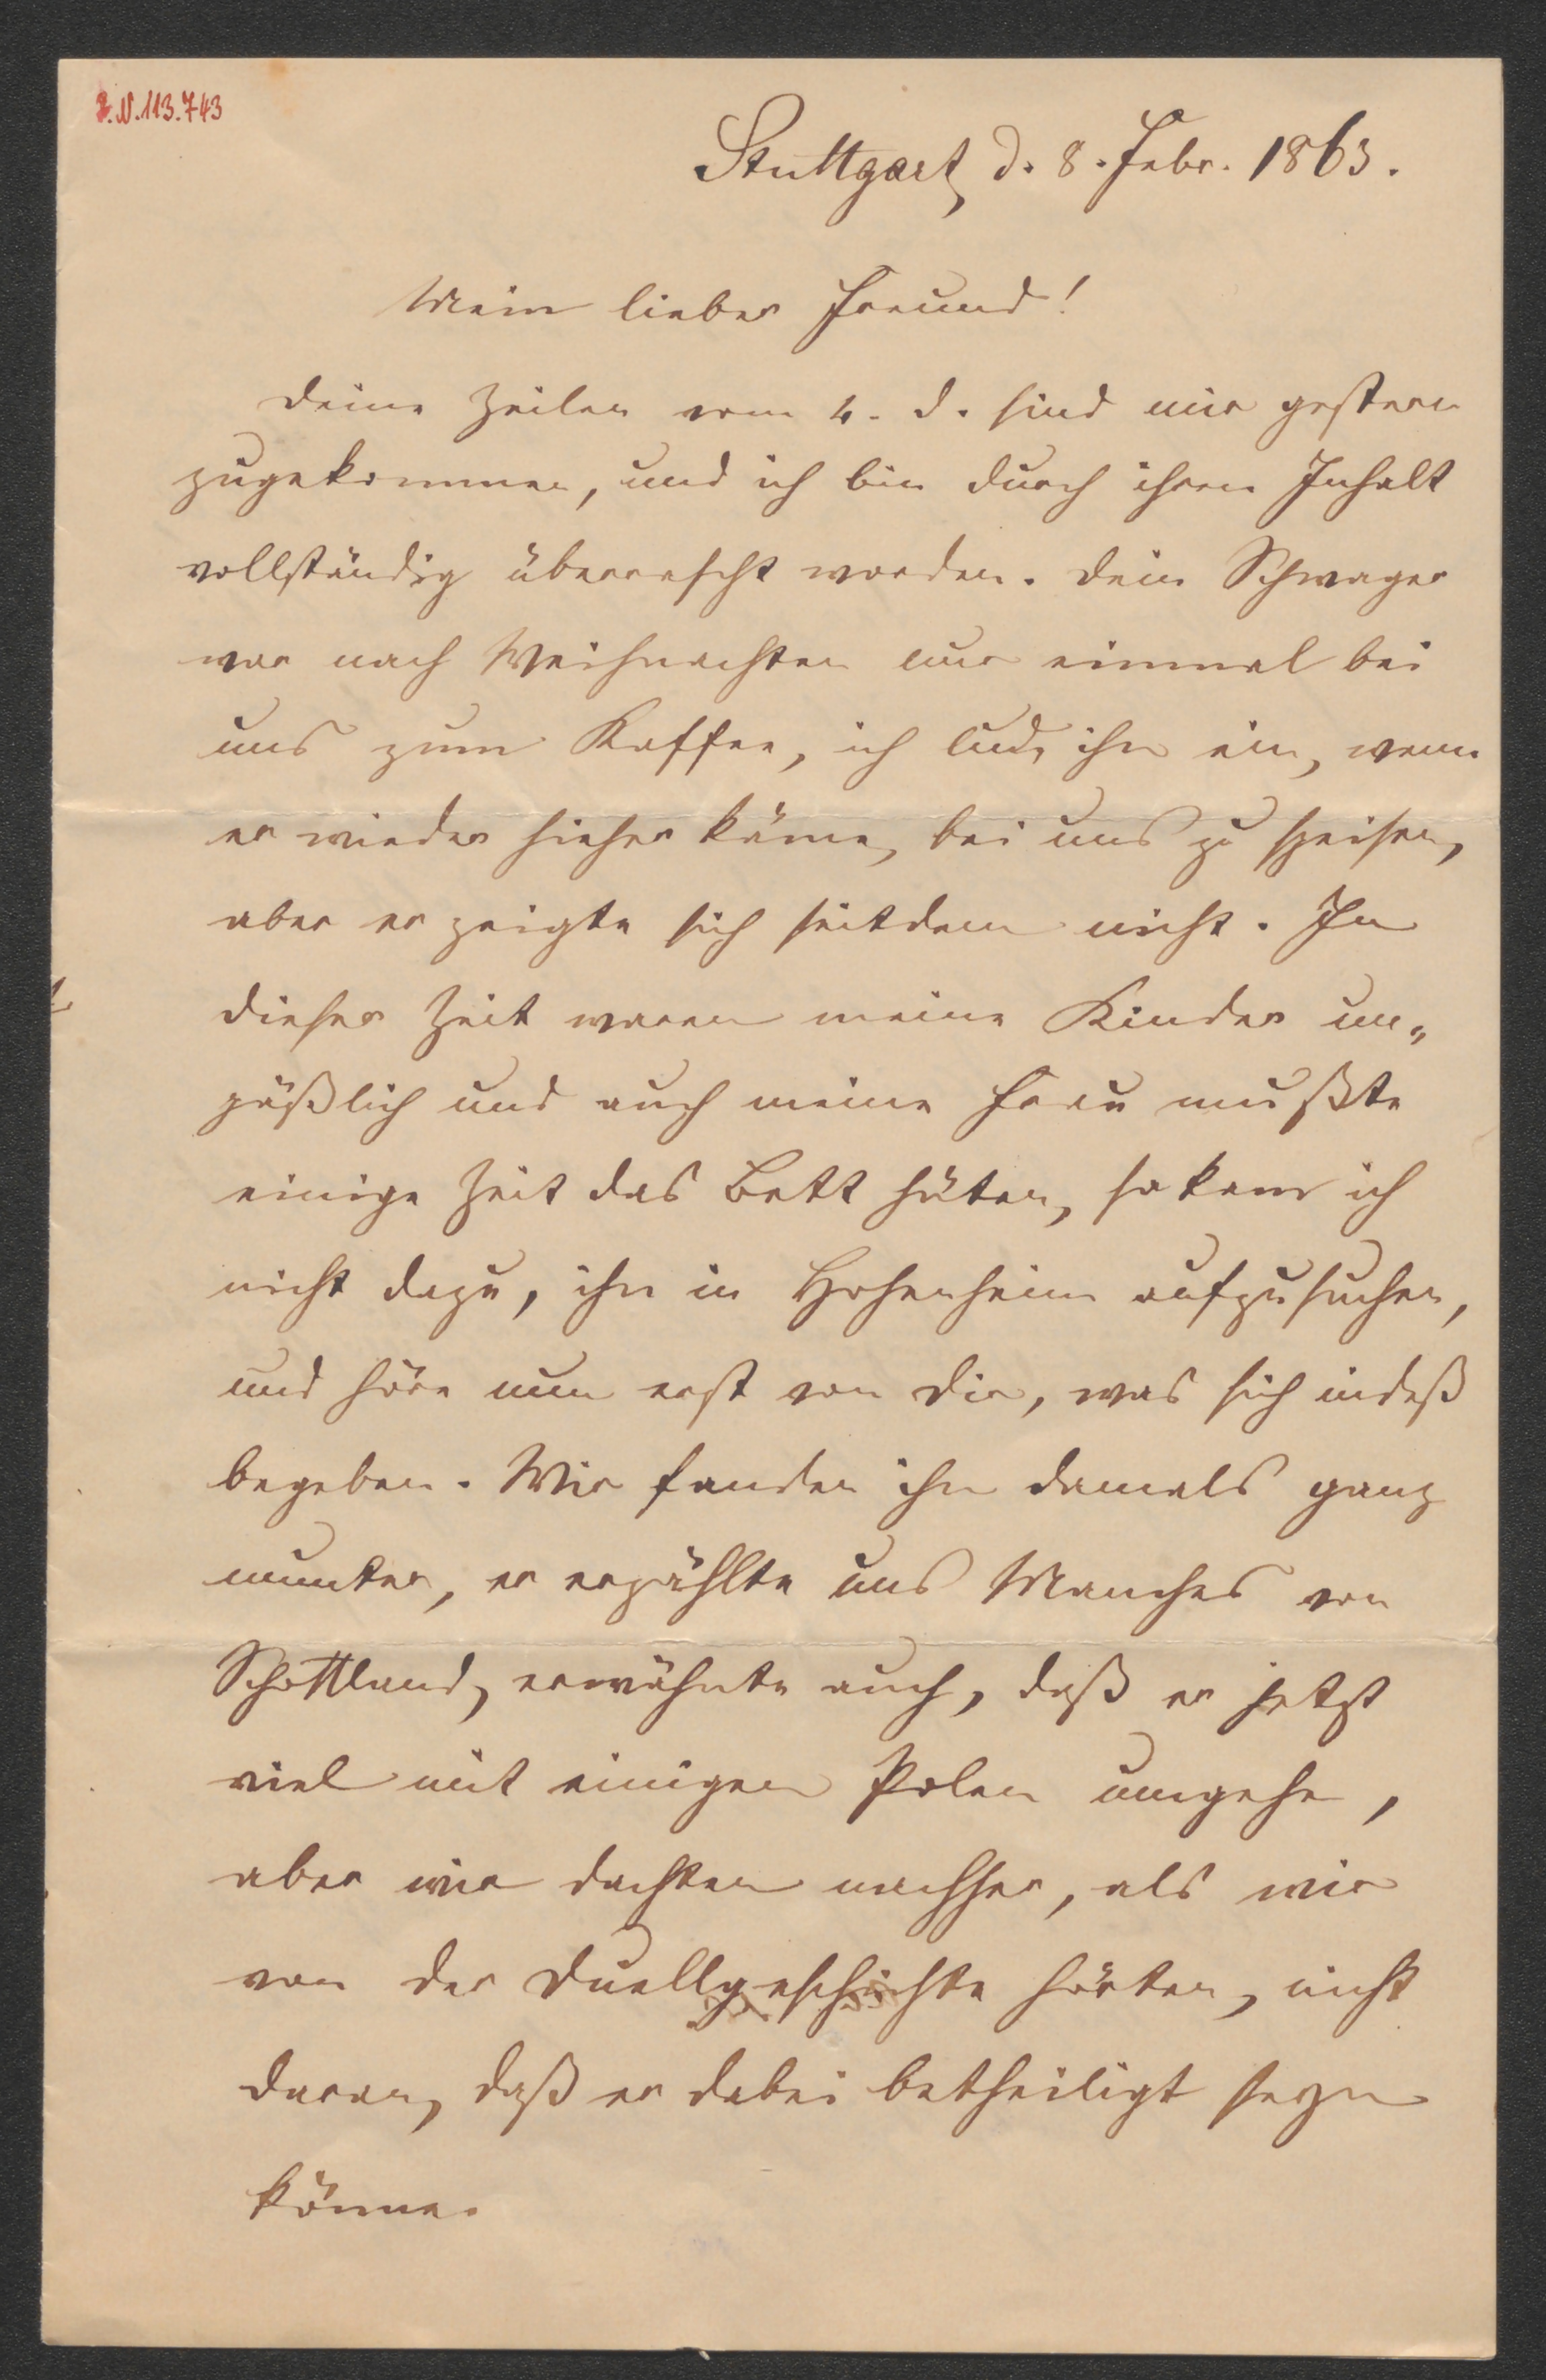 I.N.113.743
Stuttgart, d. 8. Febr. 1863.
Mein lieber Freund!
Deine Zeilen vom 4. d. sind mir gestern
zugekommen, und ich bin durch ihren Inhalt
vollständig überrascht worden. Dein Schwager
war nach Weihnachten nur einmal bei
uns zum Kaffee, ich lud, ihn ein, wenn
er wieder hieher käme, bei uns zu speisen,
aber er zeigte sich seitdem nicht. In
dieser Zeit waren meine Kinder un„
päßlich und auch meine Frau mußte
einige Zeit das Bett hüten, so kam ich
nicht dazu, ihn in Hohenheim aufzusuchen,
und höre nun erst von Dir, was sich indeß
begeben. Wir fanden ihn damals ganz
munter, er erzählte uns Manches von
Schottland, erwähnte auch, daß er jetzt
viel mit einigen Polen umgehe,
aber wir dachten nachher, als wir
von der Duellgeschichte hörten, nicht
daran, daß er dabei betheiligt seyn
könne.